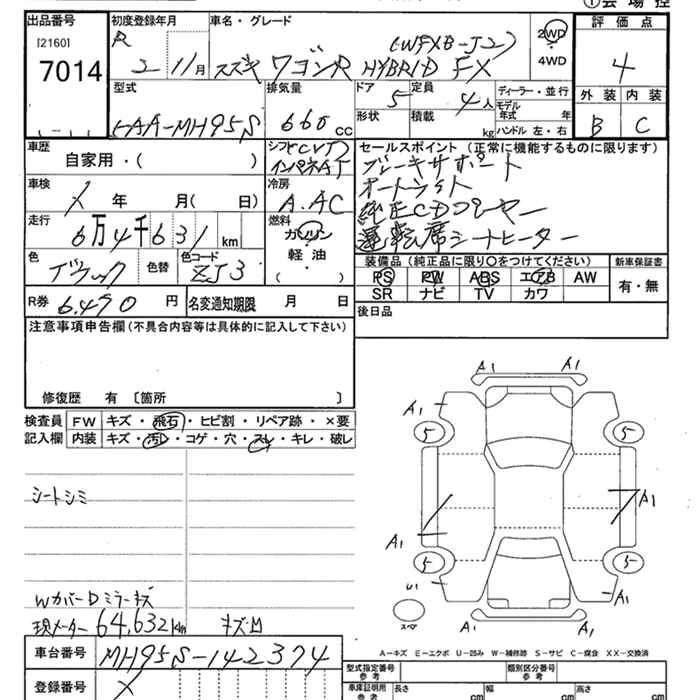 ①会場控
出品番号 初度登録年月 車名・グレード 評価点
[2160]
7014
R 2 11月 スズキ ワゴンR HYBRID FX (WFXB-J2) 2WD 4WD 4
型式 排気量 ドア 5 定員 4人 ディーラー・並行
モデル年式 年 外装 内装
5AA-MH95S 660cc 形状 積載 kg ハンドル 左・右 B C
車歴 シフト セールスポイント(正常に機能するものに限ります)
自家用・( ) インパネAT ブレーキサポート
車検 冷房 オートライト
年 月( 日) A.AC 純正CDプレーヤー
走行 燃料 運転席シートヒーター
6万4千631km ガソリン
色 色替 色コード 軽油 装備品(純正品に限り○をつけてください) 新車保証書
ブラック ZJ3 ( ) PS PW ABS エアB AW 有・無
SR ナビ TV カワ
R券 6,490円 名変通知期限 月 日
後日品
注意事項申告欄(不具合内容等は具体的に記入して下さい)
修復歴 有〔箇所 〕
検査員記入欄 FW キズ・飛石・ヒビ割・リペア跡・×要
内装 キズ・汚レ・コゲ・穴・スレ・キレ・破レ
シートシミ
WカバーDミラーキズ
現メーター64,632km キズ凹
車台番号 MH95S-142374
登録番号 X
A1 A1
A1
5 5
A1 A1
5 5
U1 A1
スペア A1 A1
A-キズ E-エクボ U-凹み W-補修跡 S-サビ C-腐食 XX-交換済
型式指定番号 参考 類別区分番号 参考
車庫証明用 参考 長さ cm 幅 cm 高さ cm